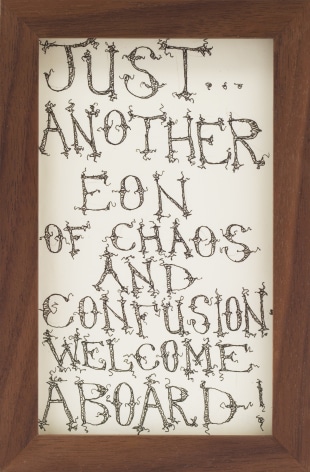 JUST...
ANOTHER
EON
OF CHAOS
AND
CONFUSION
WELCOME
ABOARD!